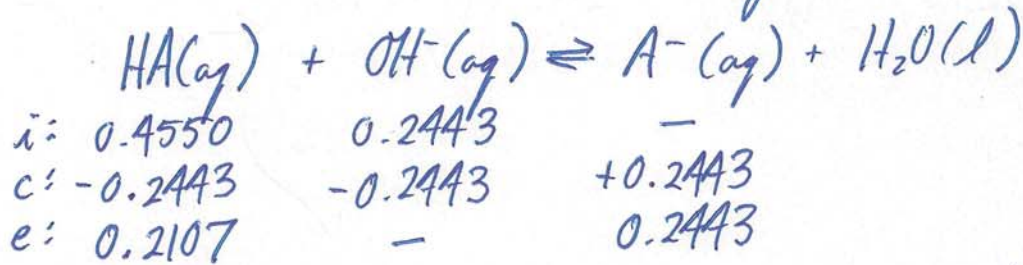 HA(aq) + OH⁻(aq) ⇌ A⁻(aq) + H₂O(l)
i: 0.4550 0.2443 —
c: -0.2443 -0.2443 +0.2443
e: 0.2107 — 0.2443